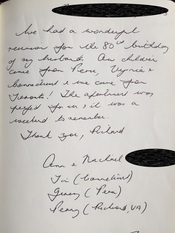 We had a wonderful
reunion for the 80th birthday
of my husband. Our children
came from Peru, Virginia &
Connecticut & we came from
Toronto! The apartment was
perfect for us & it was a
weekend to remember.
Thank you, Richard
Ann & Michael
Tim (Connecticut)
(Peru)
Penny (Richmond, VA)